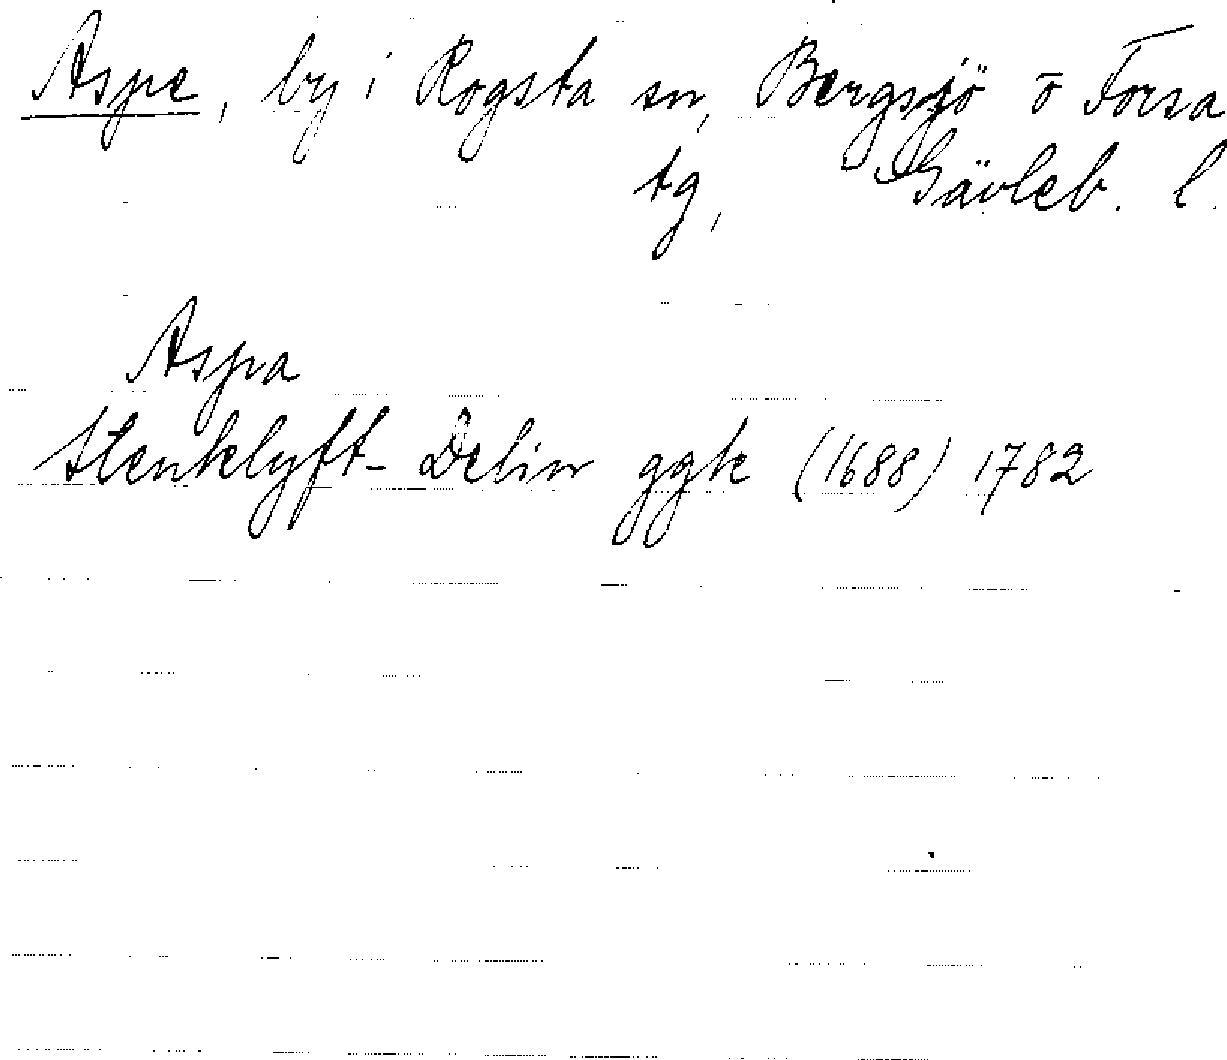 Aspe, by i Rogsta sn, Bergsjö o Forsa
tg, Gävleb. l.
Aspa
Stenklyft- Delin ggk (1688) 1782